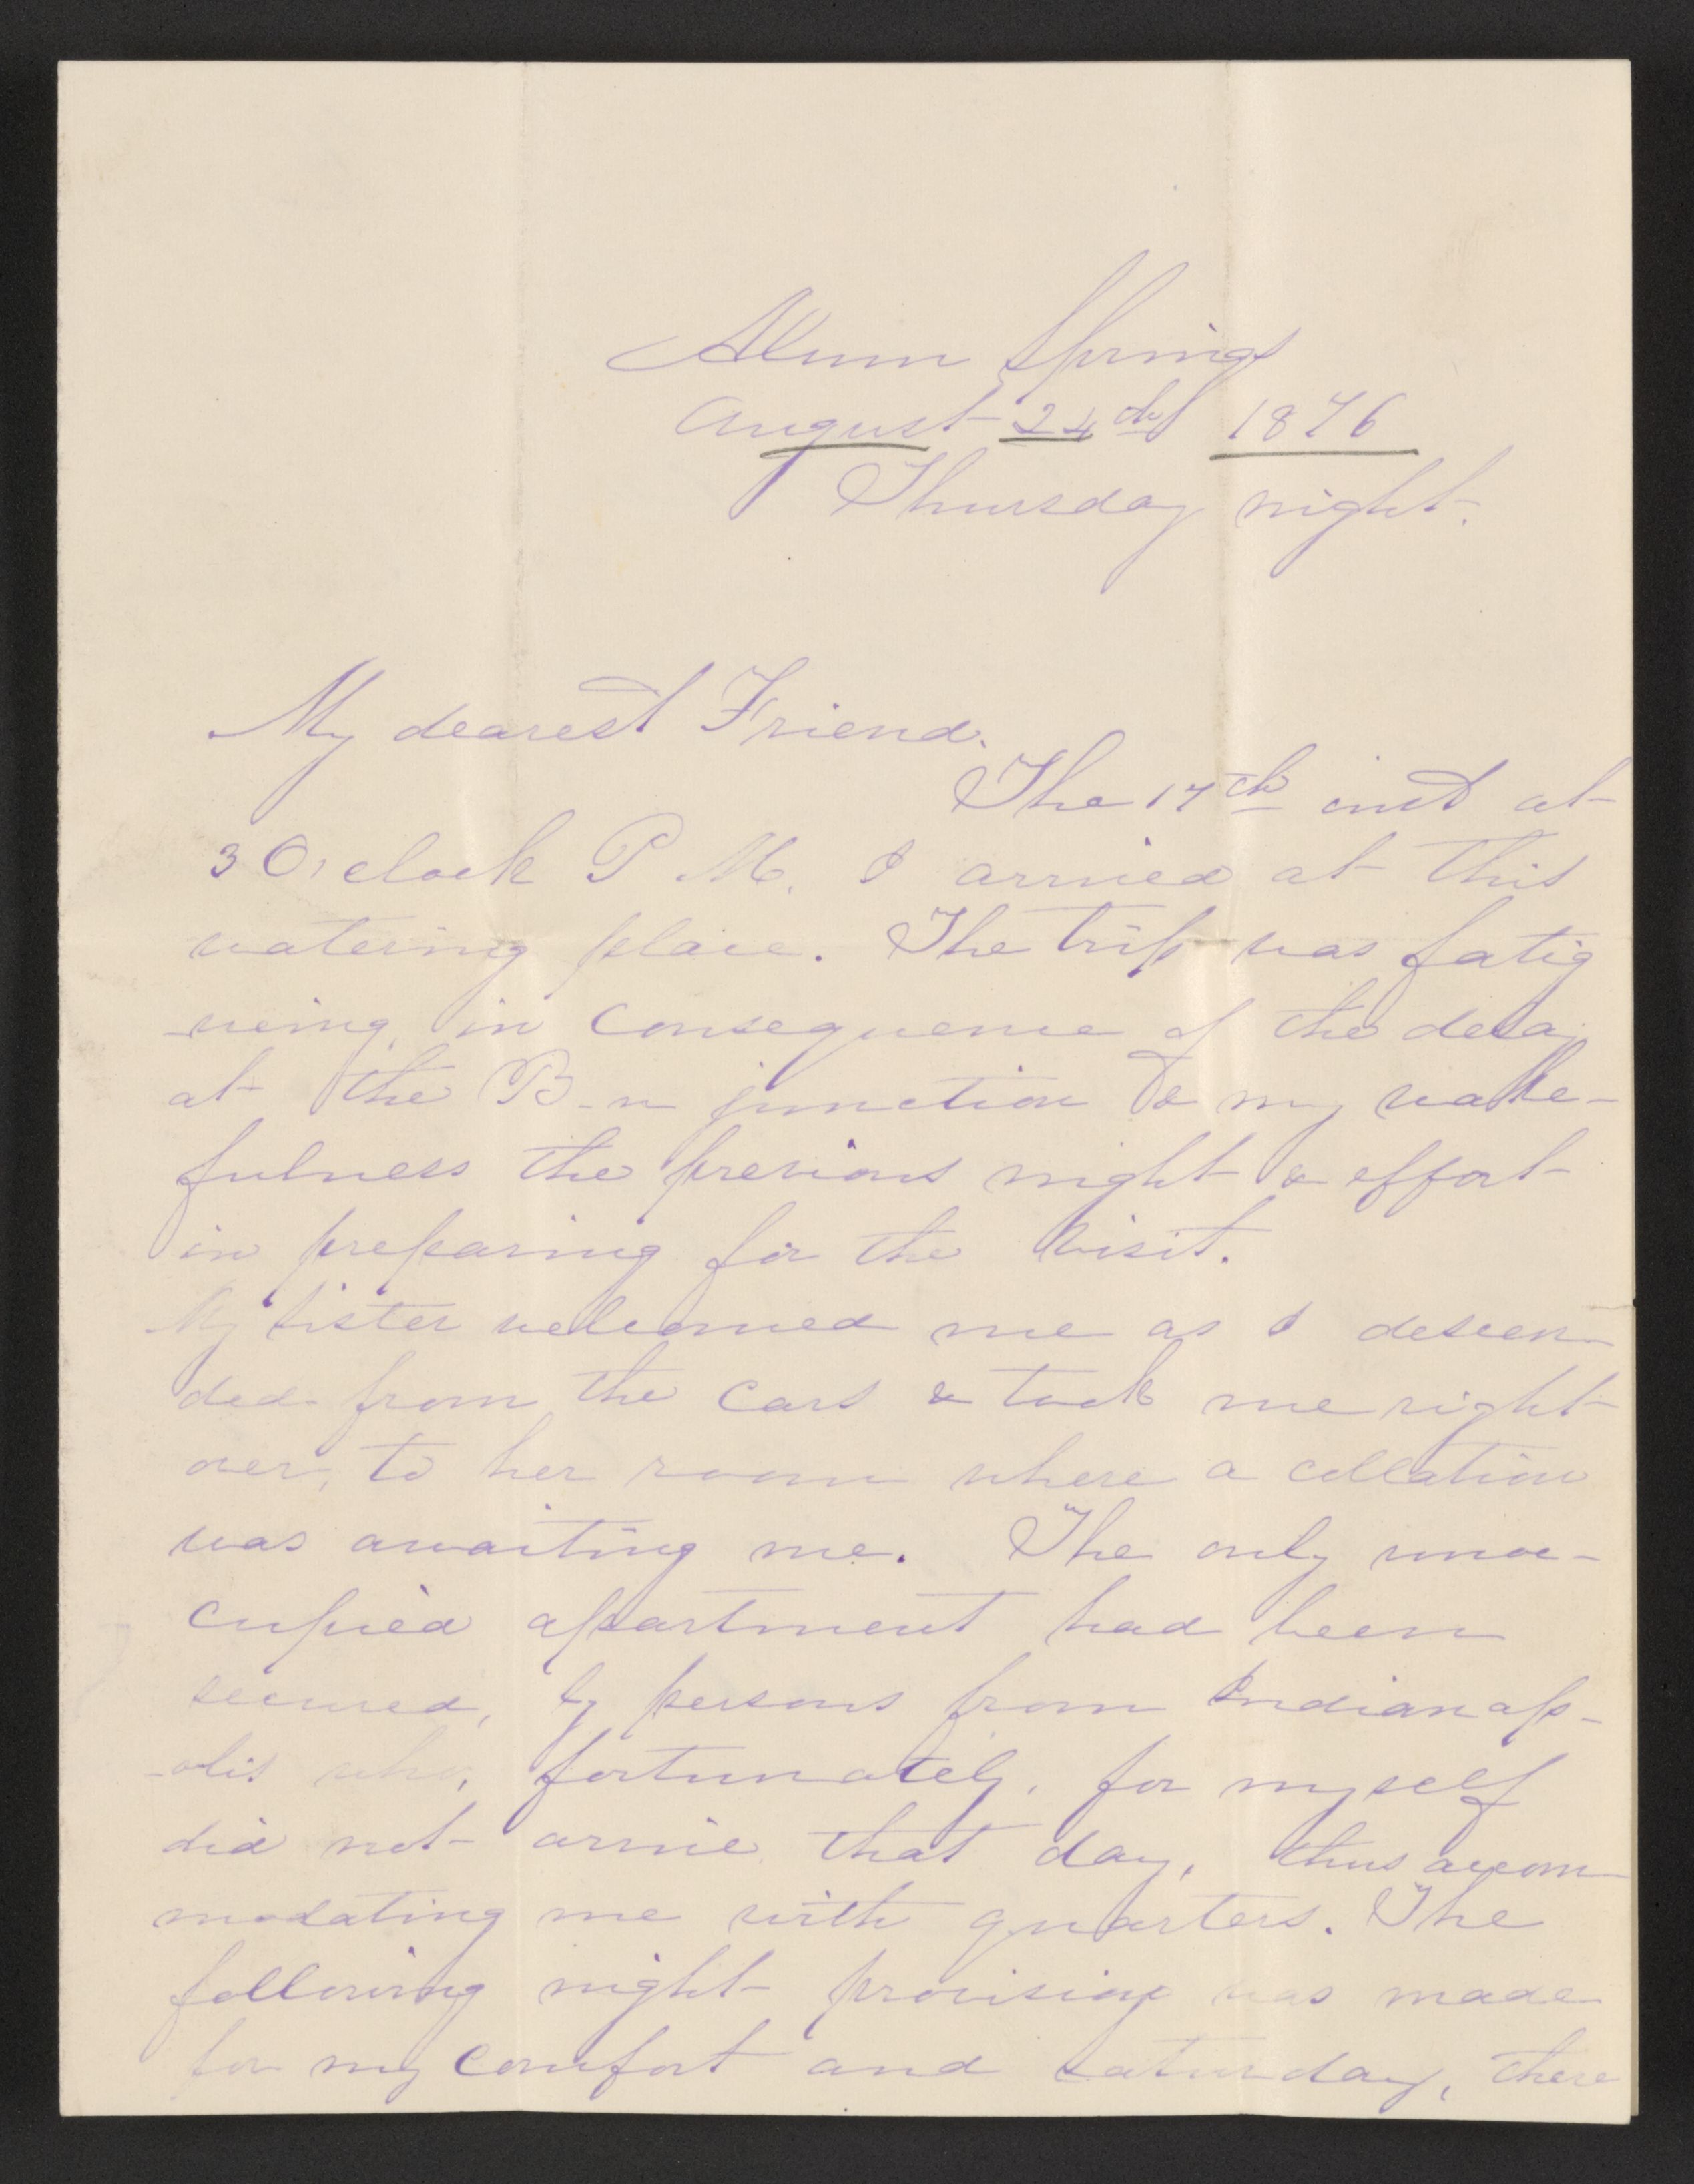 Alum Springs
August 24th 1876
Thursday night.
My dearest Friend.
The 17th inst at
3 O,clock P. M. I arrived at this
watering place. The trip was fatig
-ueing, in consequence of the delay
at the B-n junction & my wake-
fulness the previous night & effort
in preparing for the visit.
My sister welcomed me as I descen-
ded from the cars & took me right
over, to her room where a collation
was awaiting me. The only unoc-
cupied apartment had been
secured, by persons from Indianap-
-olis who, fortunately, for myself
did not arrive that day, thus accom-
modating me with quarters. The
following night provision was made
for my comfort and Saturday, there